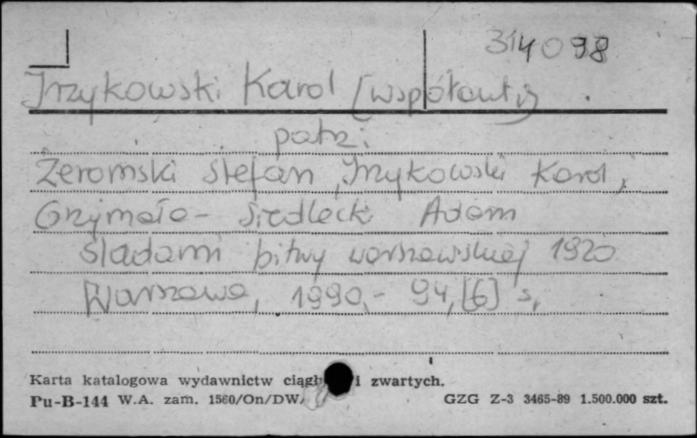 314098
Irzykowski Karol [współaut.]
patrz:
Żeromski Stefan, Irzykowski Karol,
Grzymała-Siedlecki Adam
Śladami bitwy warszawskiej 1920
Warszawa, 1990,- 94,[6] s,
Karta katalogowa wydawnictw ciągł i zwartych.
Pu-B-144 W.A. zam. 1560/On/DW/ GZG Z-3 3465-89 1.500.000 szt.